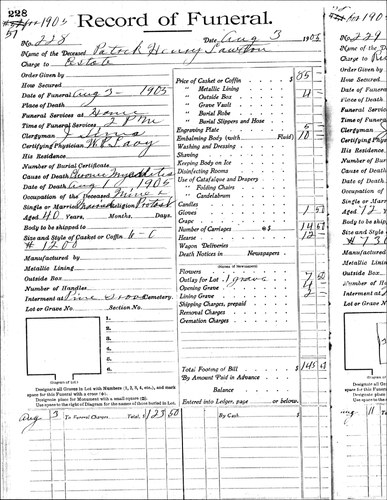 228
1905
57
Record of Funeral.
No. 228 Date Aug 3 1905
Name of the Deceased Patrick Henry Lawton
Charge to Estate
Order Given by
How Secured
Date of Funeral Aug 3 - 1905
Place of Death
Funeral Services at Home
Time of Funeral Services 2 PM
Clergyman
Certifying Physician W.P. Lavy
His Residence
Number of Burial Certificate
Cause of Death Chronic
Date of Death Aug 1 1905
Occupation of the Deceased Miner
Single or Married Married Religion Protest
Aged 40 Years, Months, Days.
Body to be shipped to
Size and Style of Casket or Coffin 6-0
# 1208
Manufactured by
Metallic Lining
Outside Box
Number of Handles
Interment at Pine Grove Cemetery.
Lot or Grave No. Section No.
1.
2.
3.
4.
5.
6.
(Diagram of Lot)
Designate all Graves in Lot with Numbers (1, 2, 3, 4, etc.), and mark
space for this Funeral with a cross (+).
Designate place for Monument with a small square (□).
Use space to the right of Diagram for the names of those buried in Lot.
Price of Casket or Coffin $ 85 -
" Metallic Lining
" Outside Box 4 -
" Grave Vault
" Burial Robe
" Burial Slippers and Hose
Engraving Plate
Embalming Body (with Fluid) 10 -
Washing and Dressing
Shaving
Keeping Body on Ice
Disinfecting Rooms
Use of Catafalque and Drapery
" Folding Chairs
" Candelabrum
Candles
Gloves 1 50
Crape
Number of Carriages
Hearse 12 -
Wagon Deliveries
Death Notices in Newspapers
(Names of Newspapers)
Flowers 7 50
Outlay for Lot 1 grave
Opening Grave
Lining Grave 2 -
Shipping Charges, prepaid
Removal Charges
Cremation Charges
Total Footing of Bill $ 145
By Amount Paid in Advance
Balance
Entered into Ledger, page or below.
Aug 3 To Funeral Charges, Total, $ 123 50 By Cash $
for 190
No. 229
Name of the
Charge to
Order Given
How Secured
Date of Funeral
Place of Death
Funeral Services
Time of Funeral
Clergyman
Certifying
His Residence
Number of Burial
Cause of Death
Date of Death
Occupation of
Single or Married
Aged 72
Body to be ship
Size and Style of
# 730
Manufactured
Metallic Lining
Outside Box
Number of Han
Interment at
Lot or Grave No.
(Diagram of
Designate all Gra
space for this Fune
Designate place
Use space to the rig
Aug 11